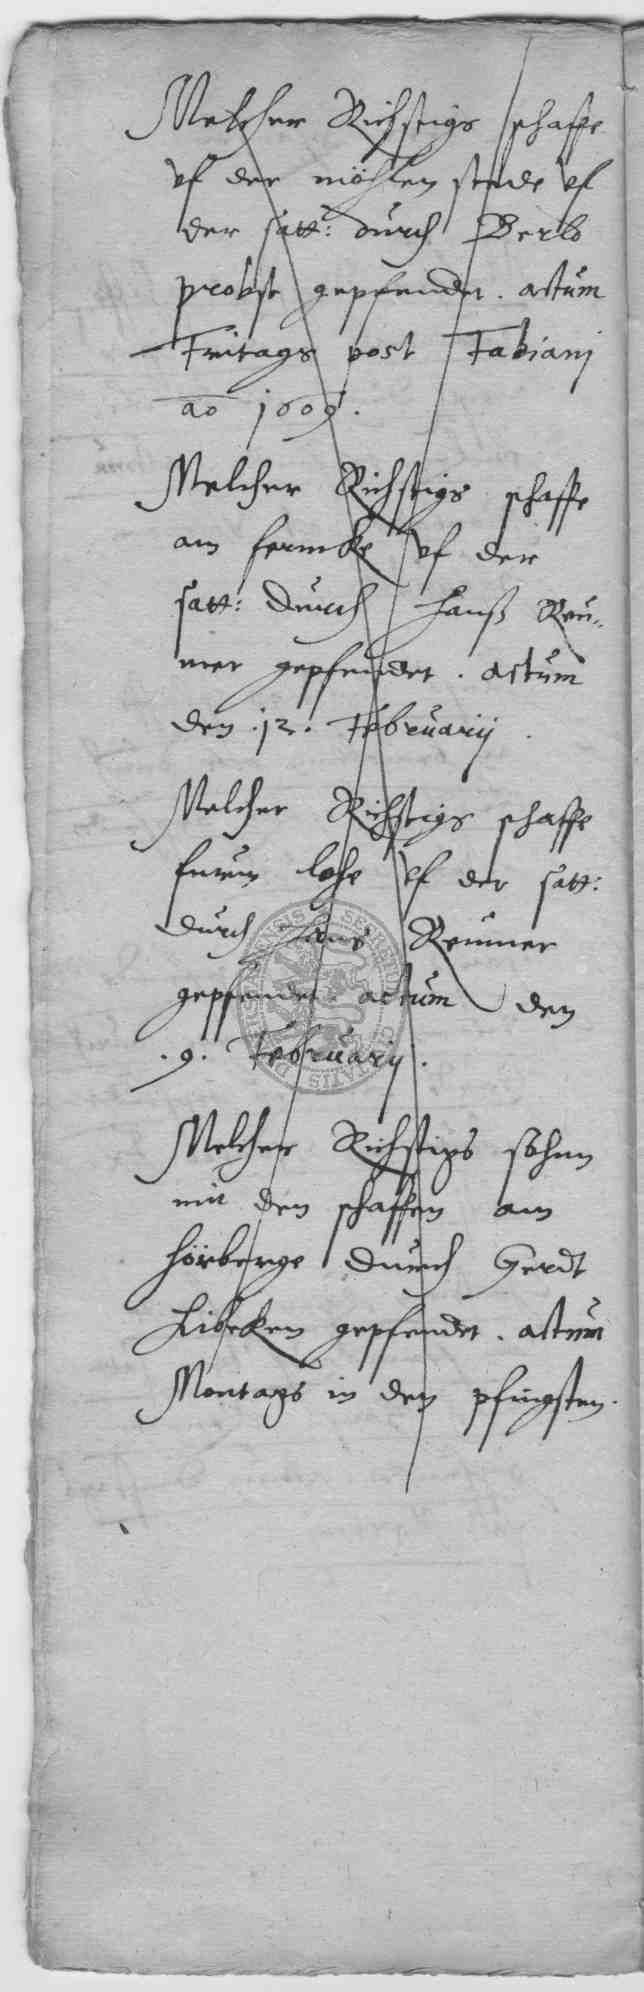 Melcher Richstigs schaffe
uf der möhlen stede uf
der satt: durch Berlo
probst gepfendet. actum
Freitags post Fabiani
ao 1609.
Melcher Richstigs schaffe
am uf der
satt: durch Hanß Reu„
mer gepfendet. actum
den .12. Februarij.
Melcher Richstigs schaffe
lohe uf der satt:
durch Hans Reumer
gepfendet. actum den
.9. Februarij.
Melcher Richstigs sohnn
mit den schaffen am
hörberge durch Gerdt
Libeken gepfendet. actum
Montags in den pfingsten.